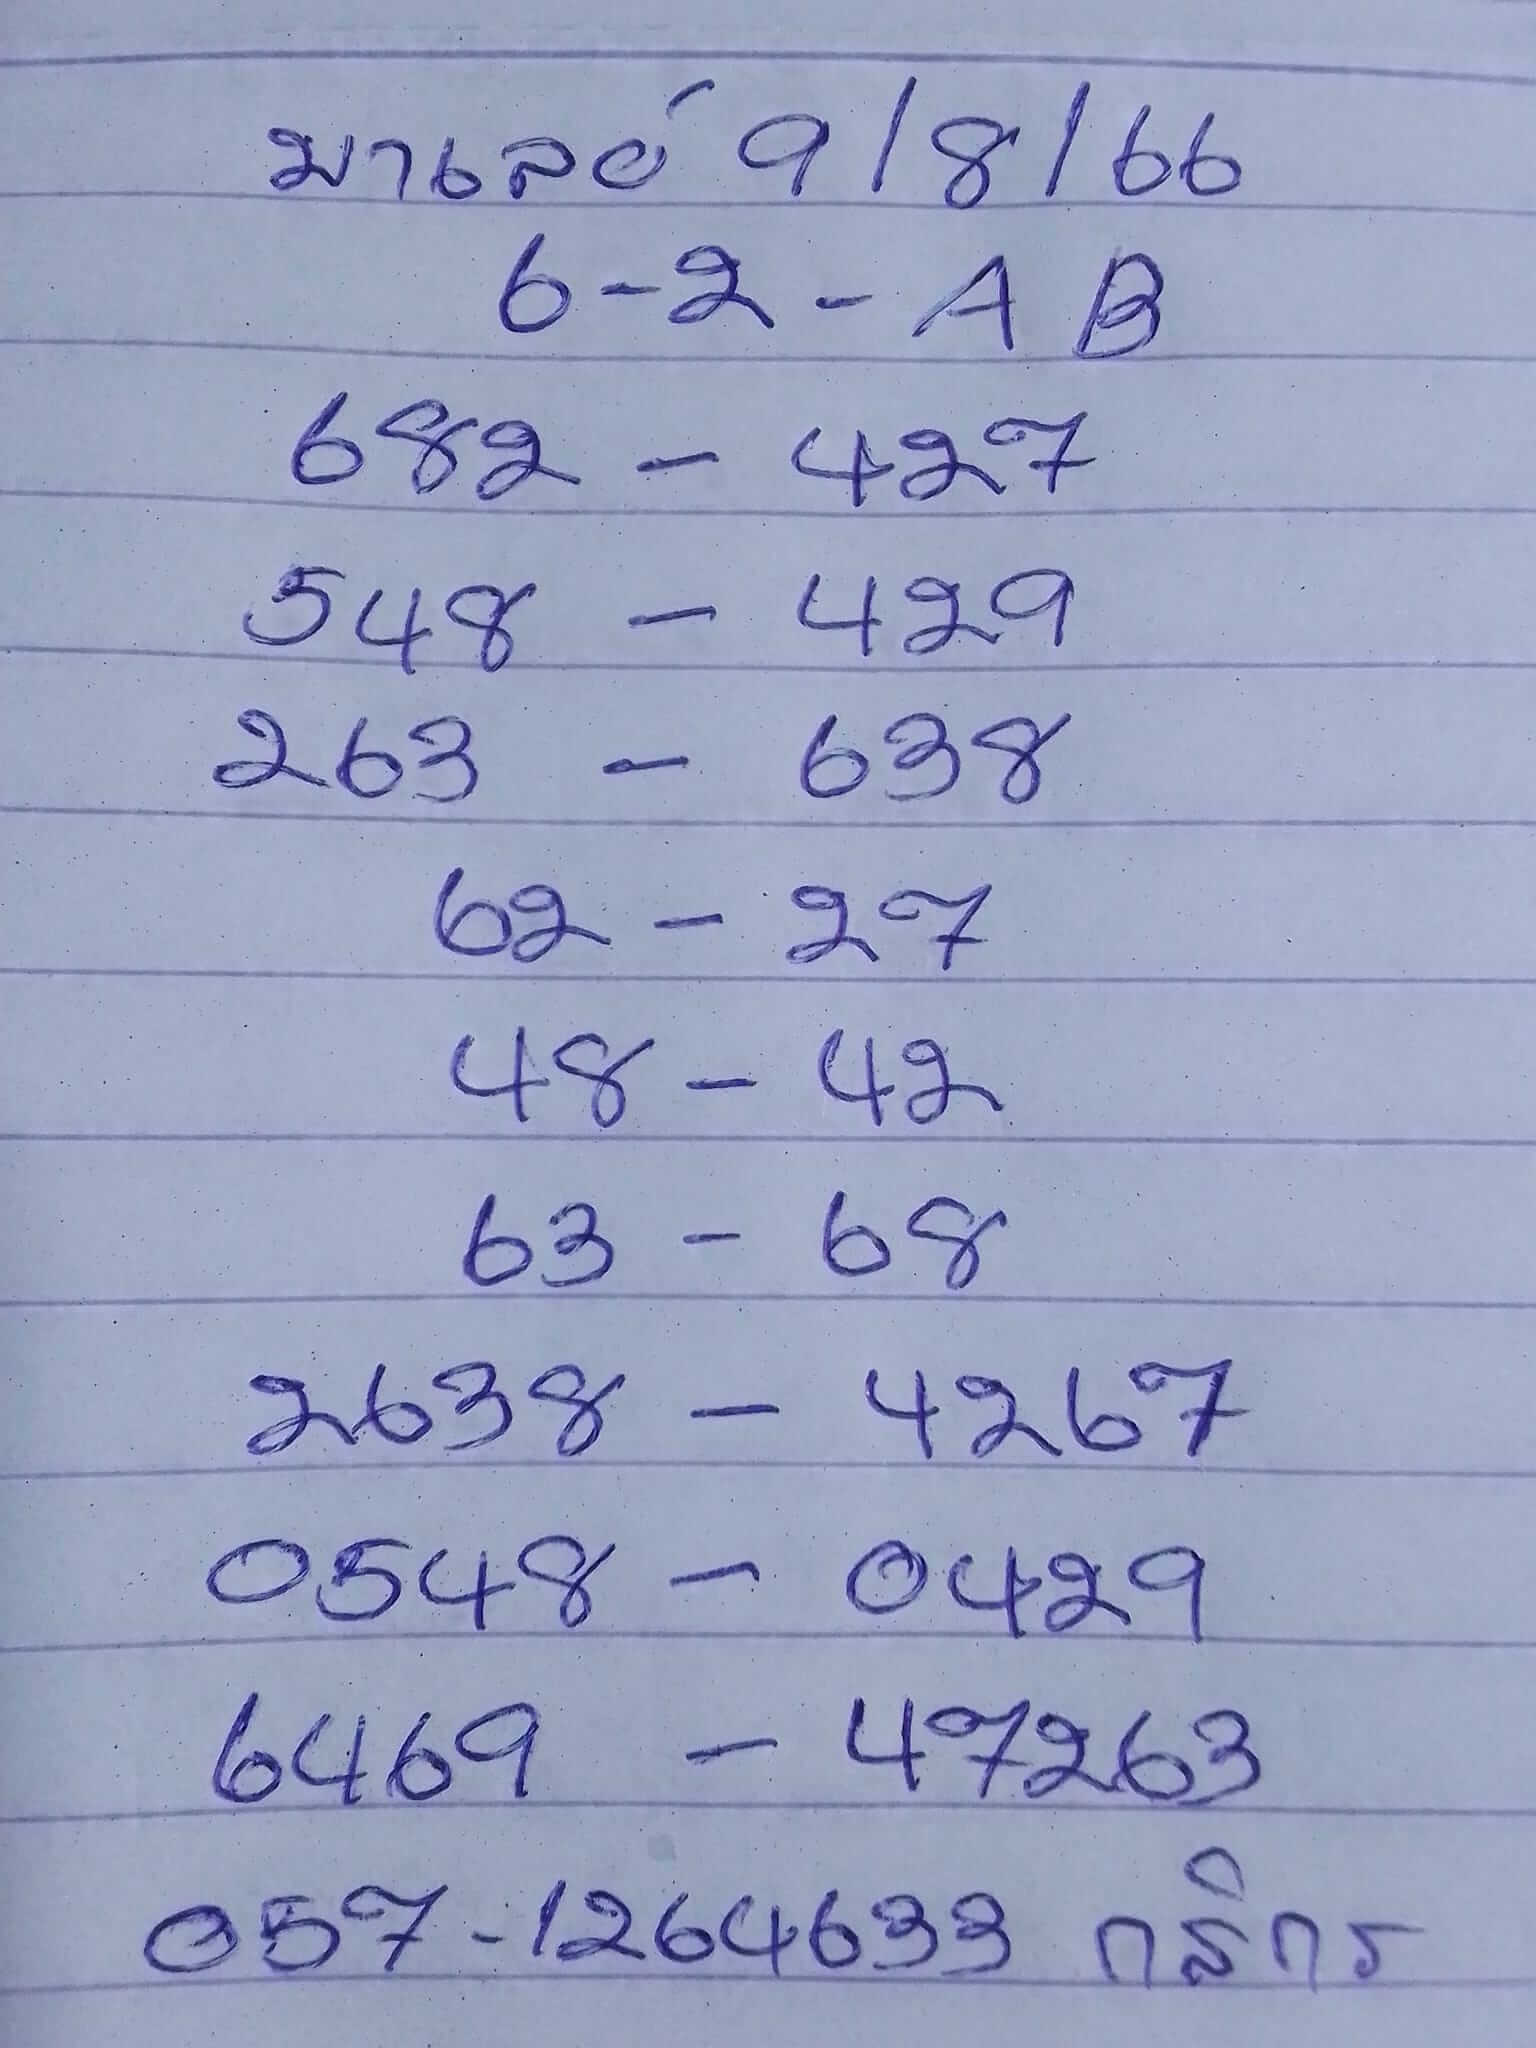 มาเลย์ 9/8/66
6-2-AB
682 - 427
548 - 429
263 - 638
62 - 27
48 - 42
63 - 68
2638 - 4267
0548 - 0429
6469 - 47263
057-1264633 กสิกร